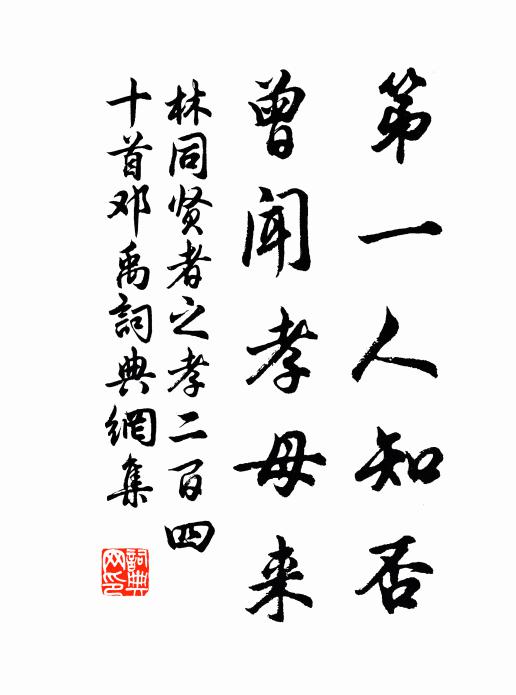 第一人知否
曾闻孝母来
林同贤者之孝二百四
十首邓禹詞典網集
詞典
网印